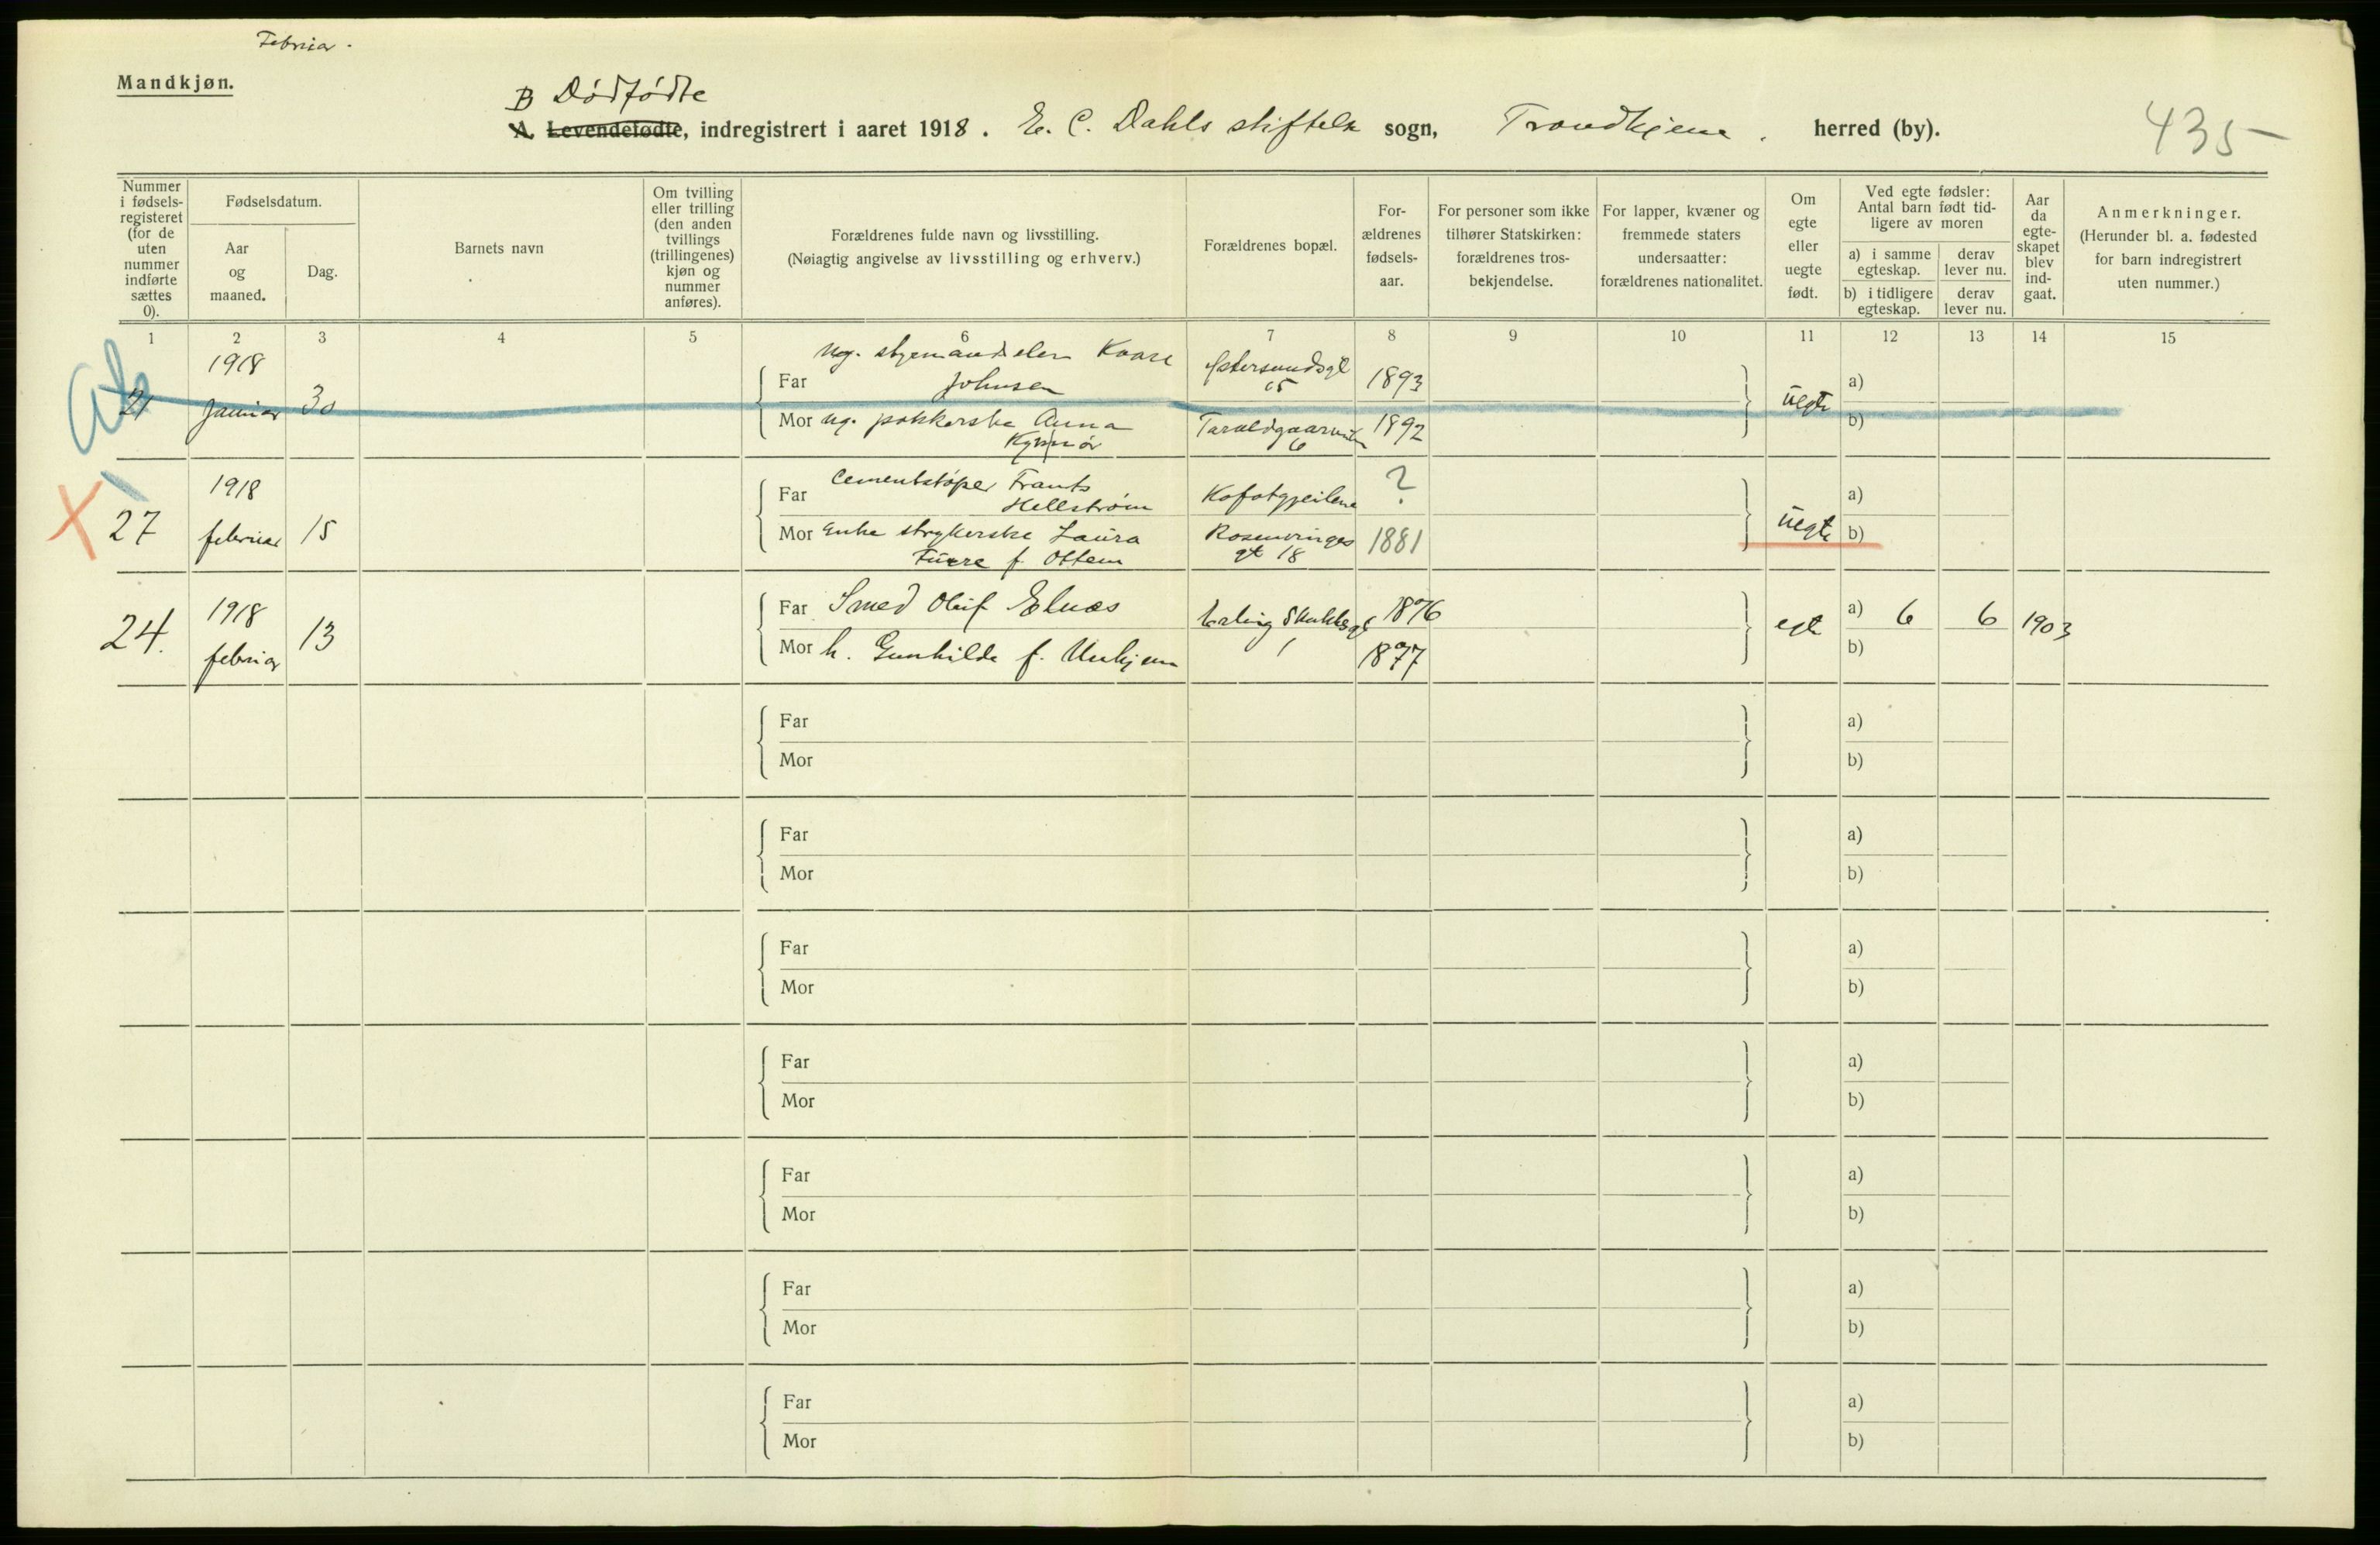 Februar.
Mandkjøn.
B Dødfødte
A. Levendefødte, indregistrert i aaret 1918. E. C. Dahls stiftelse sogn, Trondhjem. herred (by).
435
Nummer i fødsels-registeret (for de uten nummer indførte sættes 0).
Fødselsdatum.
Aar og maaned.
Dag.
Barnets navn
Om tvilling eller trilling (den anden tvillings (trillingenes) kjøn og nummer anføres).
Forældrenes fulde navn og livsstilling.
(Nøiagtig angivelse av livsstilling og erhverv.)
Forældrenes bopæl.
For-ældrenes fødsels-aar.
For personer som ikke tilhører Statskirken: forældrenes tros-bekjendelse.
For lapper, kvæner og fremmede staters undersaatter: forældrenes nationalitet.
Om egte eller uegte født.
Ved egte fødsler: Antal barn født tid-ligere av moren
a) i samme egteskap.
derav lever nu.
b) i tidligere egteskap.
derav lever nu.
Aar da egte-skapet blev ind-gaat.
Anmerkninger.
(Herunder bl. a. fødested for barn indregistrert uten nummer.)
1 2 3 4 5 6 7 8 9 10 11 12 13 14 15
21 1918 Januar 30
Far Ug. styrmandselev Kaare Johnsen Østersundsgt 15 1893
Mor ug. pakkerske Anna 1892
6
uegte a)
b)
X 27 1918 februar 15
Far Cementstøper Frants Hellstrøm ?
Mor Enke strykerske Laura f. Ottem Rosenvinges gt 18 1881
uegte a)
b)
24. 1918 februar 13
Far Smed Oluf Elnæs Erling Skakkesgt 1 1876
Mor h. Gunhilde f. 1877
egte a) 6 6 1903
b)
Far a)
Mor b)
Far a)
Mor b)
Far a)
Mor b)
Far a)
Mor b)
Far a)
Mor b)
Far a)
Mor b)
Far a)
Mor b)